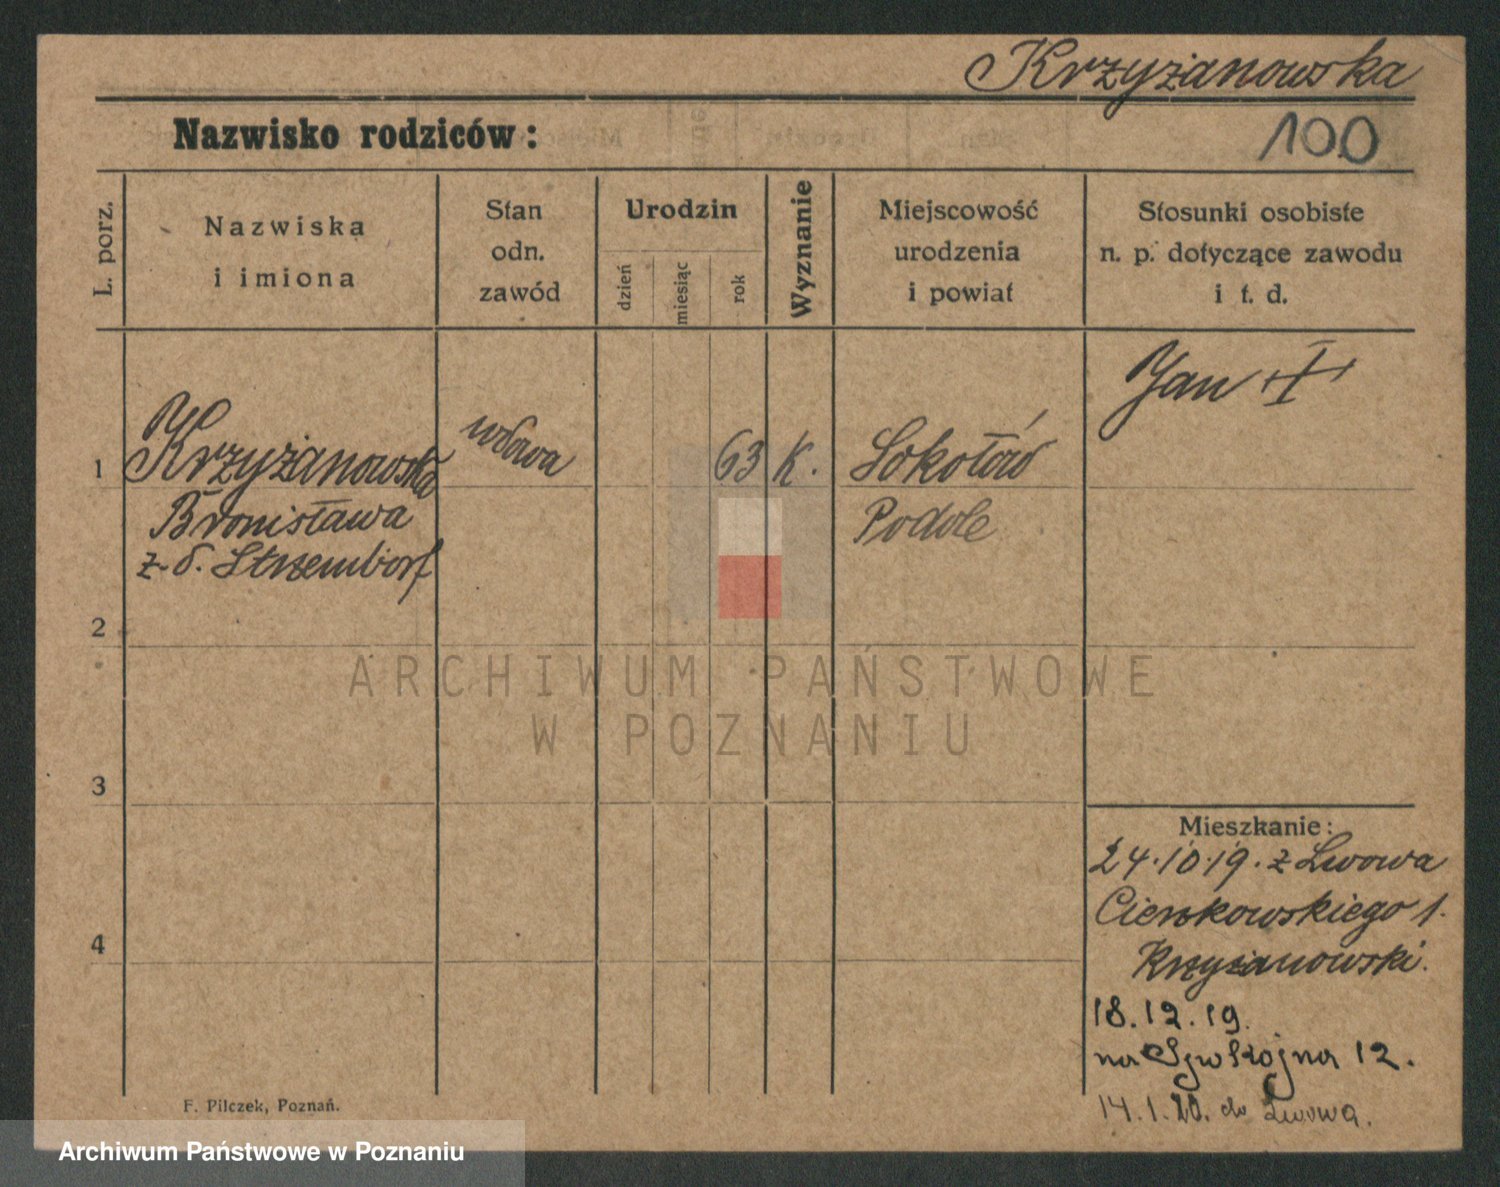 Krzyżanowska
Nazwisko rodziców:
100
L. porz.
Nazwiska
i imiona
Stan
odn.
zawód
Urodzin
dzień
miesiąc
rok
Wyznanie
Miejscowość
urodzenia
i powiat
Stosunki osobiste
n. p. dotyczące zawodu
i t. d.
Jan
1
Krzyżanowska
Bronisława
z d.
wdowa
63
K.
Sokołów
Podole
2
3
4
ARCHIWUM PAŃSTWOWE
W POZNANIU
Mieszkanie:
24.10.19. z Lwowa
Cienkowskiego 1.
Krzyżanowski.
18.12.19.
na 12.
14.1.20. do Lwowa.
F. Pilczek, Poznań.
Archiwum Państwowe w Poznaniu